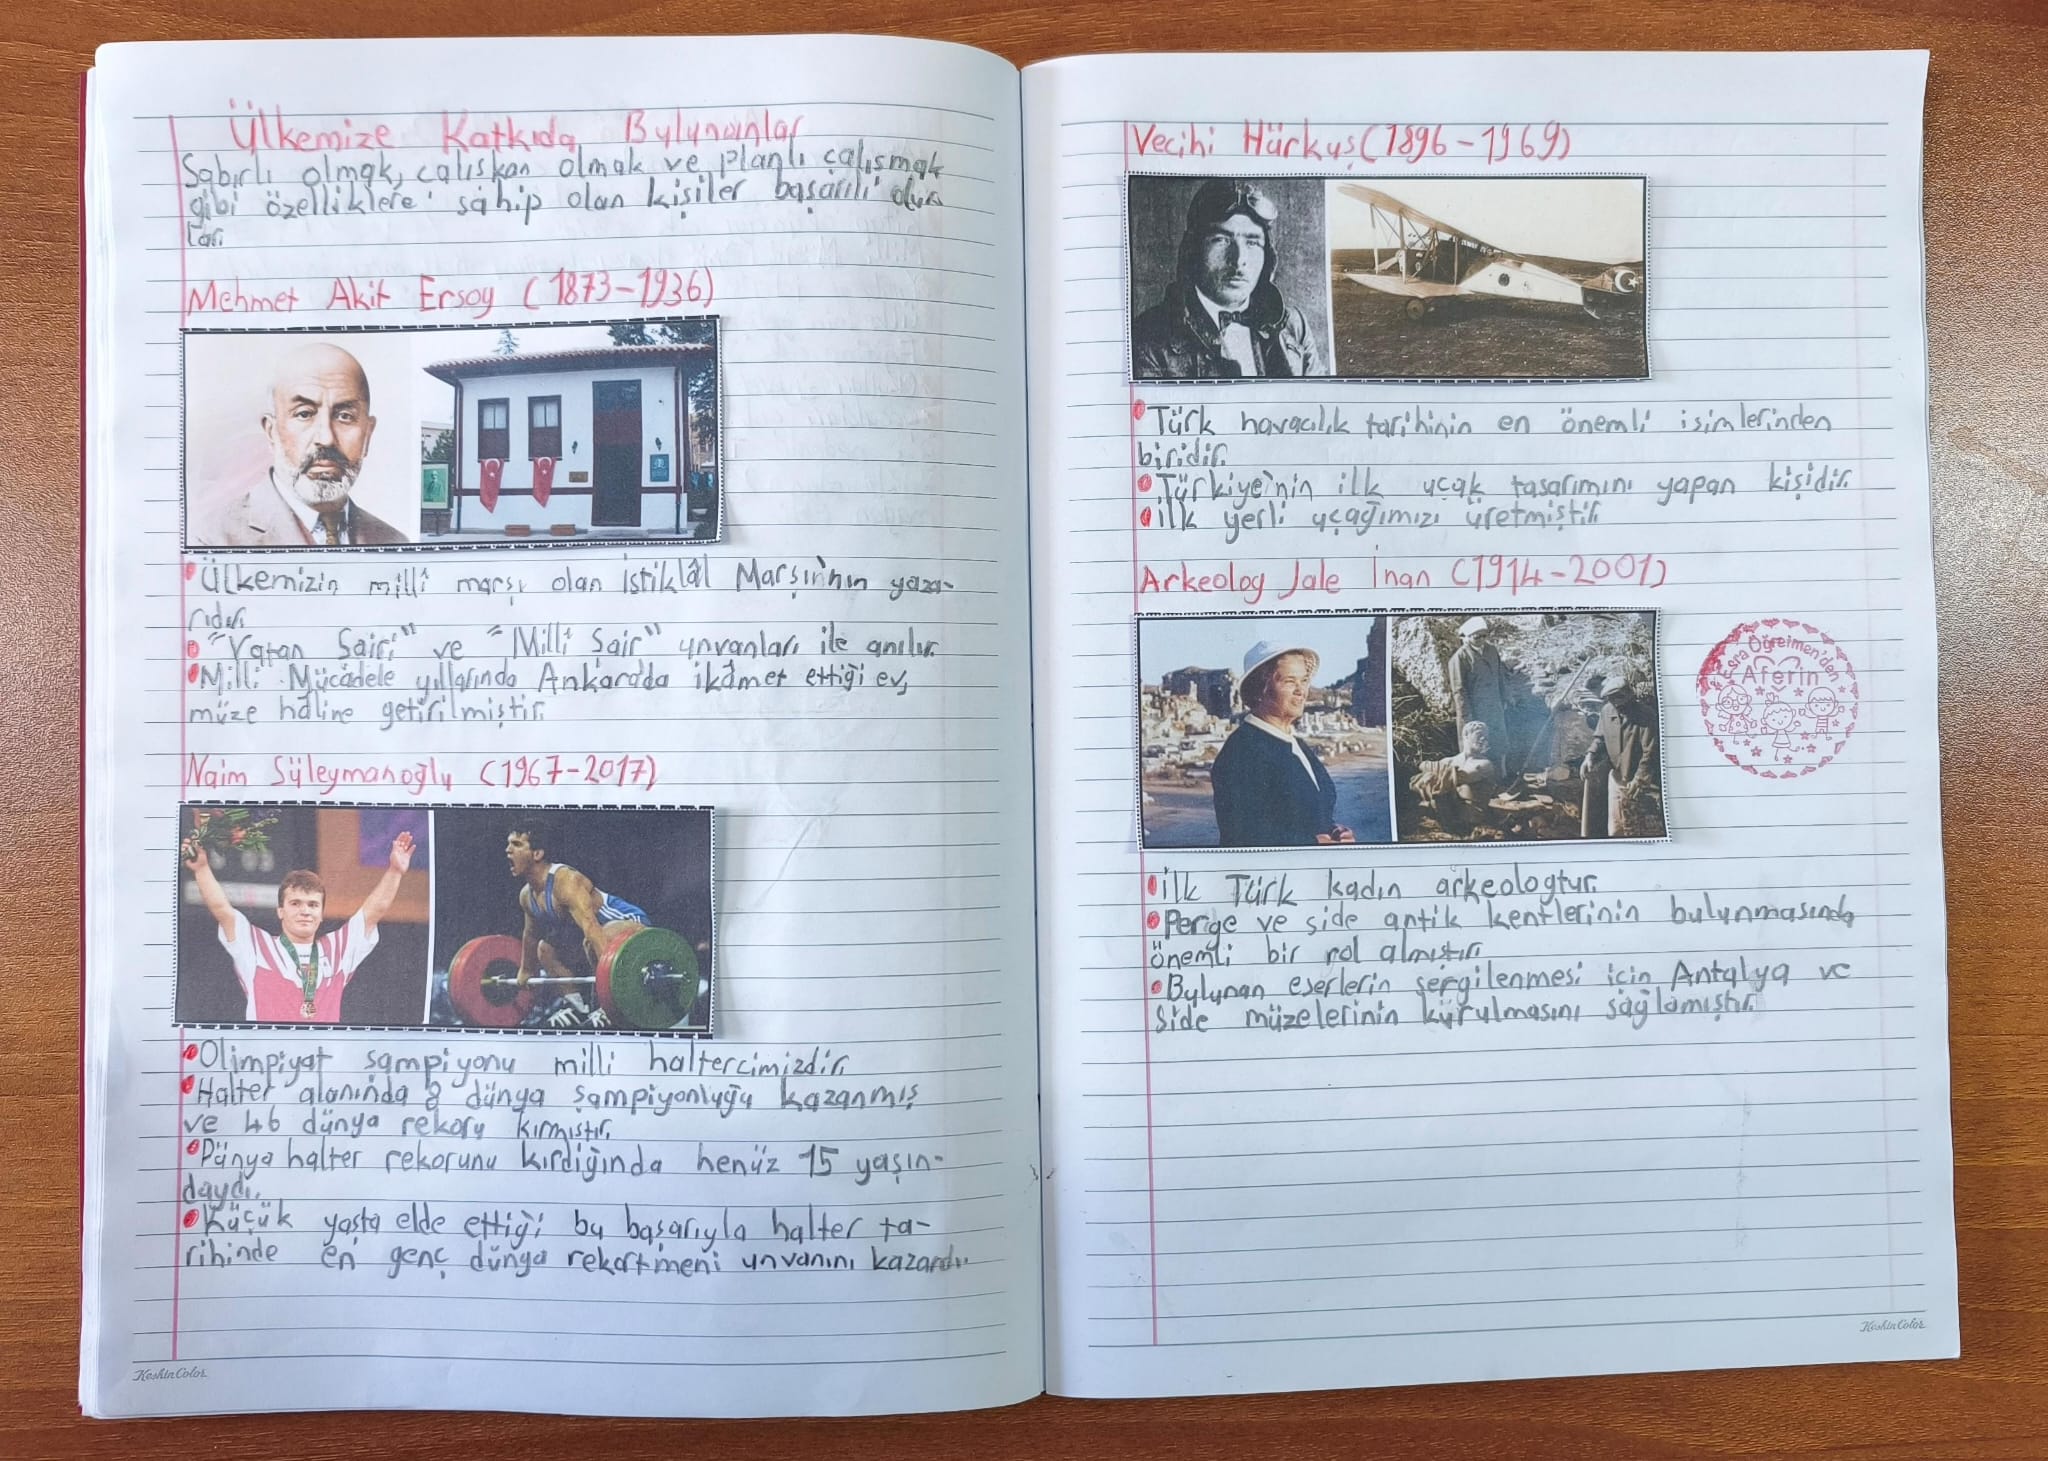 Ülkemize Katkıda Bulunanlar
Sabırlı olmak, çalışkan olmak ve planlı çalışmak
gibi özelliklere sahip olan kişiler başarılı olur
lar.
Mehmet Akif Ersoy (1873-1936)
• Ülkemizin millî marşı olan İstiklâl Marşı'nın yaza-
rıdır.
• "Vatan Şairi" ve "Millî Şair" unvanları ile anılır.
• Milli Mücadele yıllarında Ankara'da ikâmet ettiği ev,
müze haline getirilmiştir.
Naim Süleymanoğlu (1967-2017)
• Olimpiyat şampiyonu milli haltercimizdir.
• Halter alanında 8 dünya şampiyonluğu kazanmış
ve 46 dünya rekoru kırmıştır.
• Dünya halter rekorunu kırdığında henüz 15 yaşın-
daydı.
• Küçük yaşta elde ettiği bu başarıyla halter ta-
rihinde en genç dünya rekortmeni unvanını kazandı.
Keskin Color
Vecihi Hürkuş (1896-1969)
• Türk havacılık tarihinin en önemli isimlerinden
biridir.
• Türkiye'nin ilk uçak tasarımını yapan kişidir.
• ilk yerli uçağımızı üretmiştir.
Arkeolog Jale İnan (1914-2001)
Esra Öğretmen'den
Aferin
• İlk Türk kadın arkeologtur.
• Perge ve side antik kentlerinin bulunmasında
önemli bir rol almıştır.
• Bulunan eserlerin sergilenmesi için Antalya ve
Side müzelerinin kurulmasını sağlamıştır.
Keskin Color